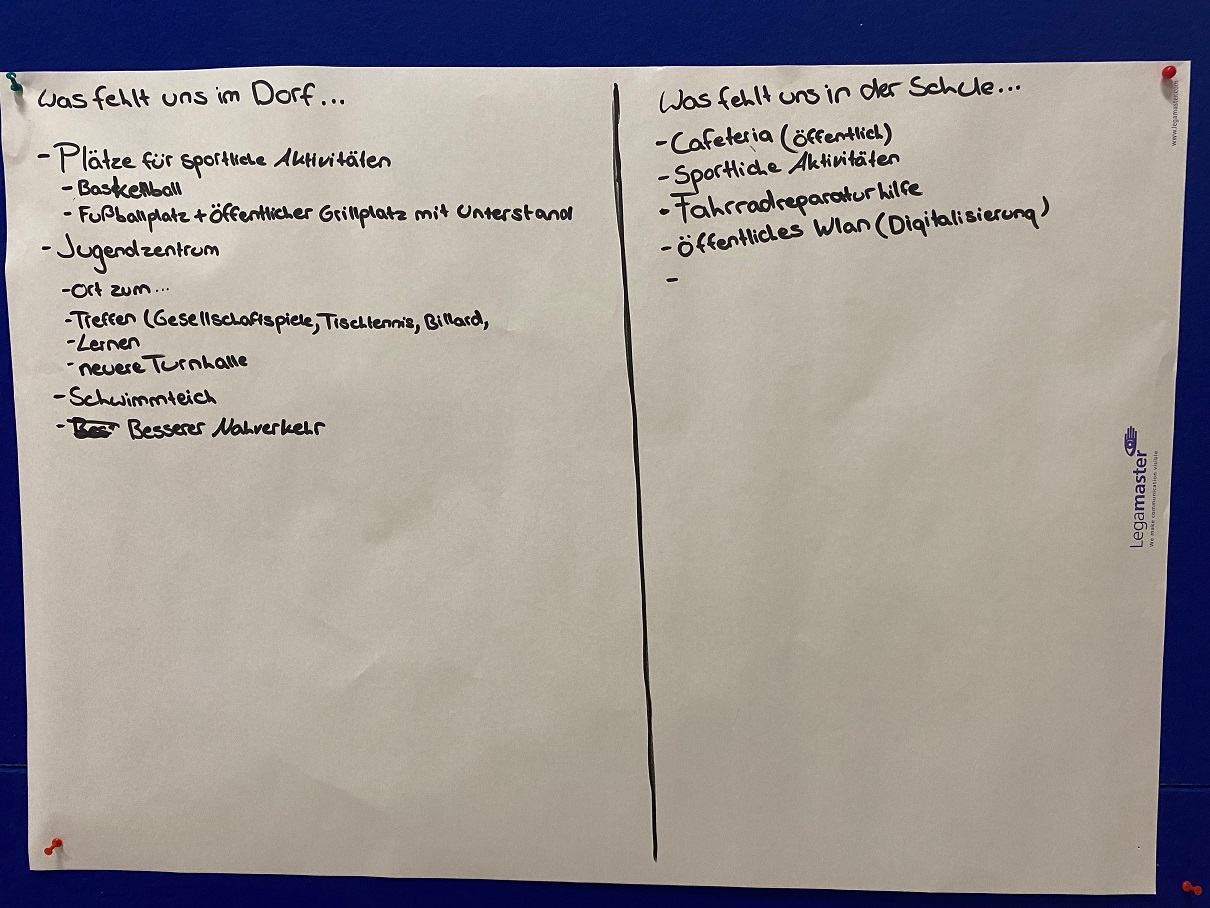 Was fehlt uns im Dorf...
- Plätze für sportliche Aktivitäten
- Basketball
- Fußballplatz + öffentlicher Grillplatz mit Unterstand
- Jugendzentrum
- Ort zum...
- Treffen (Gesellschaftspiele, Tischtennis, Billard,
- Lernen
- neuere Turnhalle
- Schwimmteich
- Besserer Nahverkehr
Was fehlt uns in der Schule...
- Cafeteria (öffentlich)
- Sportliche Aktivitäten
- Fahrradreparaturhilfe
- öffentliches Wlan (Digitalisierung)
-
www.legamaster.com
Legamaster
We make communication visible